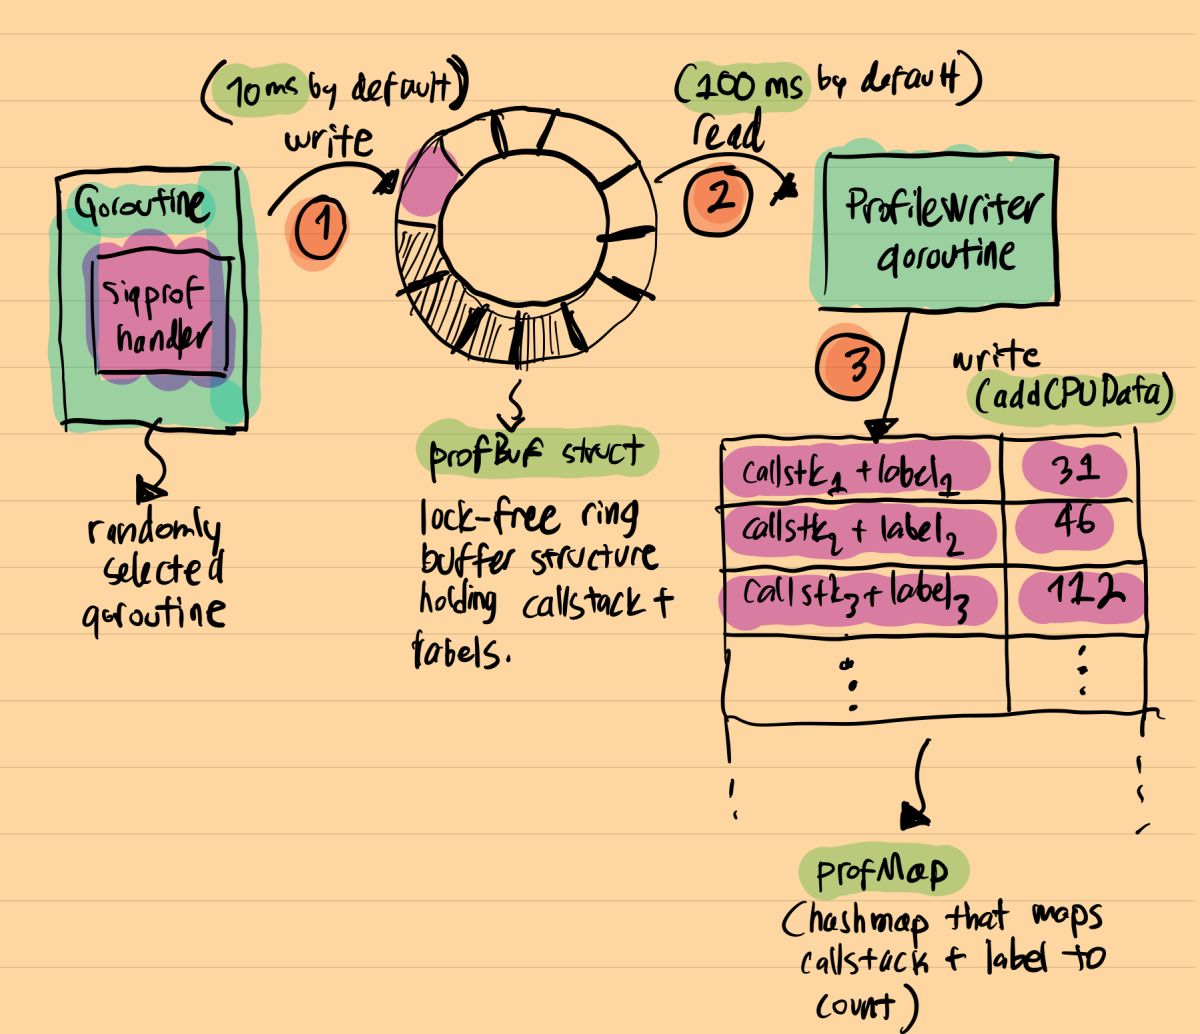 (10ms by default)
write
(100 ms by default)
read
Goroutine
sigprof
handler
1
2
ProfileWriter
goroutine
randomly
selected
goroutine
profBuf struct
lock-free ring
buffer structure
holding callstack +
labels.
3
write
(addCPUData)
callstk1 + label1 31
callstk2 + label2 46
callstk3 + label3 112
profMap
(hashmap that maps
callstack + label to
count)